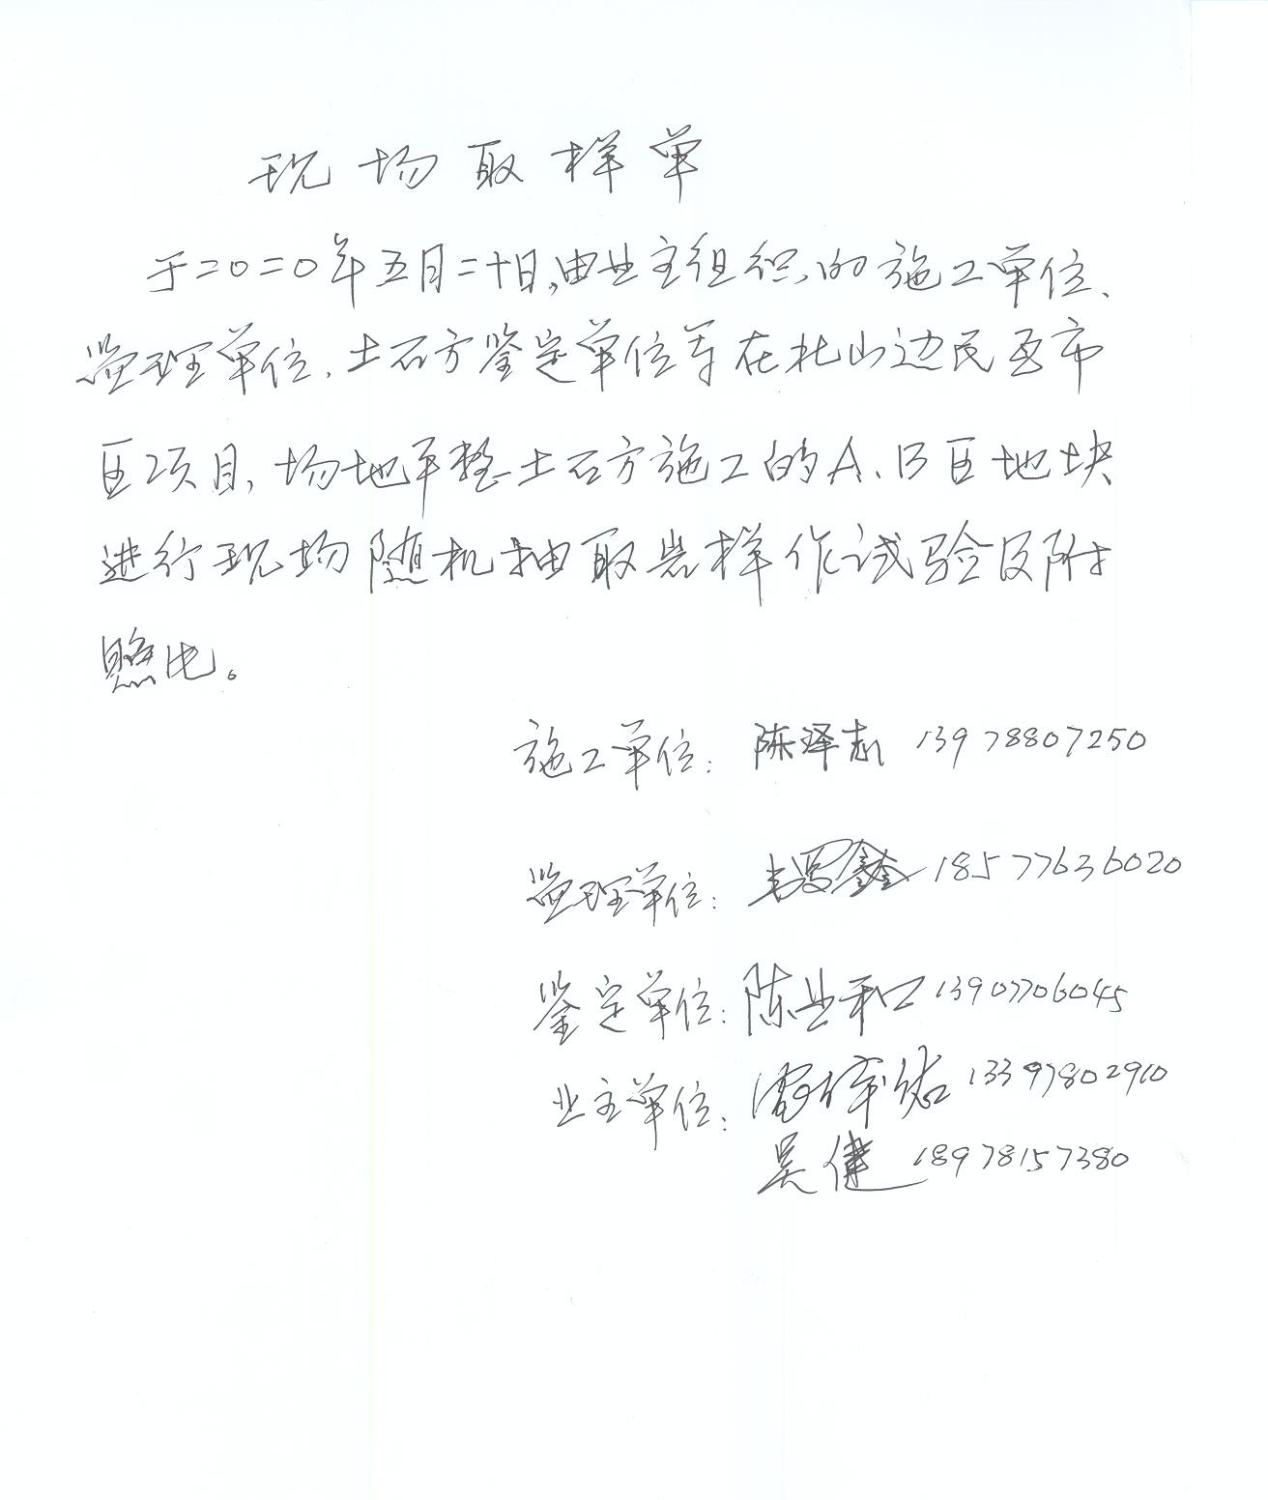 现场取样单
于二〇二〇年五月二十日,由业主组织的施工单位、
监理单位、土石方鉴定单位等在杜山边民互市
区项目,场地平整土石方施工的A、B区地块
进行现场随机抽取岩样作试验及附
照
施工单位: 陈泽志 13978807250
监理单位: 18577636020
鉴定单位: 陈业和 13907706045
业主单位: 13397802910
吴健 18978157380